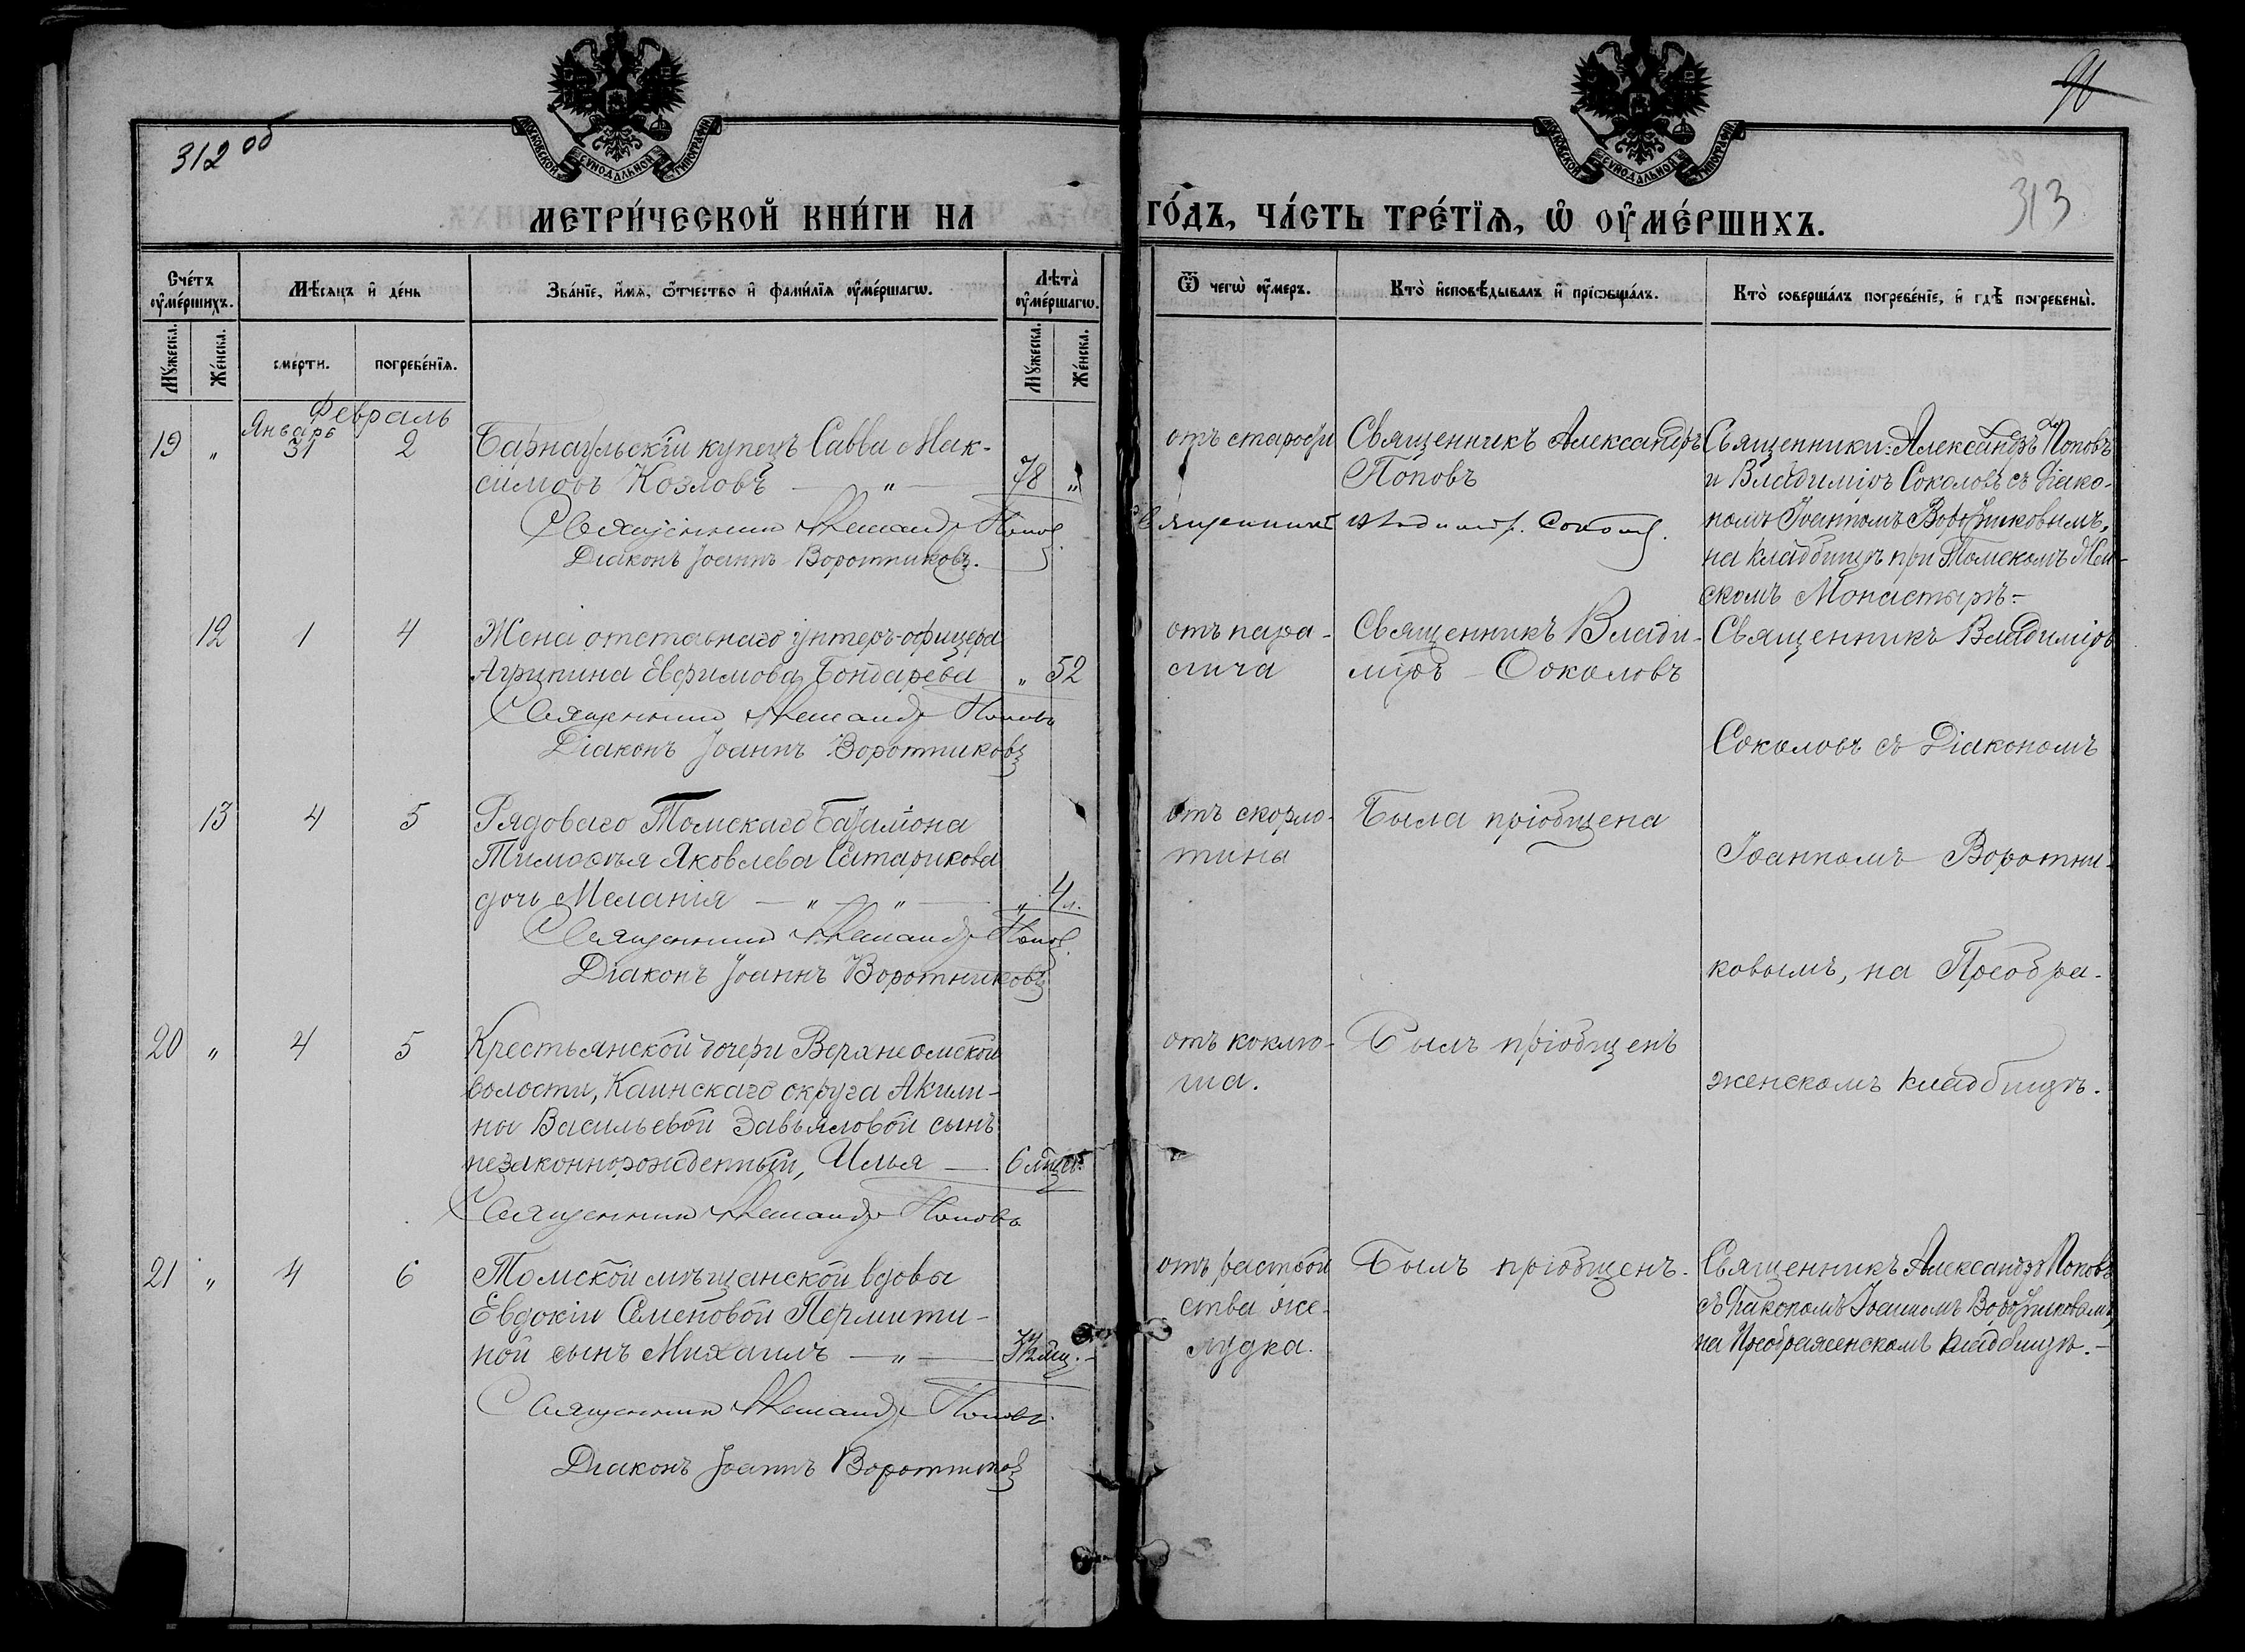 312 об
96
313
МОСКОВСКОЙ СѴНОДАЛЬНОЙ ТИПОГРАФИИ
МОСКОВСКОЙ СѴНОДАЛЬНОЙ ТИПОГРАФИИ
МЕТРИ́ЧЕСКОЙ КНИ́ГИ НА ГО́ДЪ, ЧА́СТЬ ТРЕ́ТЇѦ, Ѡ҆ ОУ҆МЕ́РШИХЪ.
Сче́тъ оу҆ме́ршихъ.
Мѣ́сѧцъ и҆ де́нь
Зва́нїе, и҆́мѧ, ѻ҆́тчество и҆ фами́лїѧ оу҆ме́ршагѡ.
Лѣ́та оу҆ме́ршагѡ.
Ѿ чегѡ̀ оу҆́меръ.
Кто̀ и҆сповѣ́дывалъ и҆ прїѡбща́лъ.
Кто̀ соверша́лъ погребе́нїе, и҆ гдѣ̀ погребены̀.
Му́жеска.
Же́нска.
сме́рти.
погребе́нїѧ.
Му́жеска.
Же́нска.
Февраль
Январь
19 " 31 2
Барнаульскій купецъ Савва Мак-
симовъ Козловъ — " — 78 "
Священникъ Александръ Поповъ
Діаконъ Іоаннъ Воротниковъ.
отъ старости
Священникъ Александръ
Поповъ
Священникъ Владиміръ Соколовъ.
Священники: Александръ Поповъ
и Владиміръ Соколовъ съ Діако-
номъ Іоанномъ Воротниковымъ,
на кладбищѣ при Томскомъ Жен-
скомъ Монастырѣ.-
12 1 4
Жена отставнаго унтеръ-офицера
Агрипина Евфимова Бондарева " 52
Священникъ Александръ Поповъ
Діаконъ Іоаннъ Воротниковъ
отъ пара-
лича
Священникъ Влади-
міръ Соколовъ
Священникъ Владиміръ
Соколовъ съ Діакономъ
13 4 5
Рядоваго Томскаго Баталіона
Тимофея Яковлева Ситарикова
дочь Меланія — " — " — " 4 л.
Священникъ Александръ Поповъ
Діаконъ Іоаннъ Воротниковъ
отъ скарла-
тина
Была пріобщена
Іоанномъ Воротни-
ковымъ, на Преобра-
20 " 4 5
Крестьянской дочери Верхнеомской
волости, Каинскаго округа Акили-
ны Васильевой Завьяловой сынъ
незаконнорожденный, Илья — 6 мцев.
Священникъ Александръ Поповъ
отъ коклю-
ша.
Былъ пріобщенъ
женскомъ кладбищѣ.
21 " 4 6
Томской мѣщанской вдовы
Евдокіи Семеновой Пермити-
ной сынъ Михаилъ — " —
Священникъ Александръ Поповъ
Діаконъ Іоаннъ Воротниковъ
отъ растрой
ства же-
лудка.
Былъ пріобщенъ.
Священникъ Александръ Поповъ
съ Діакономъ Іоанномъ Воротниковымъ,
на Преображенскомъ кладбищѣ.-